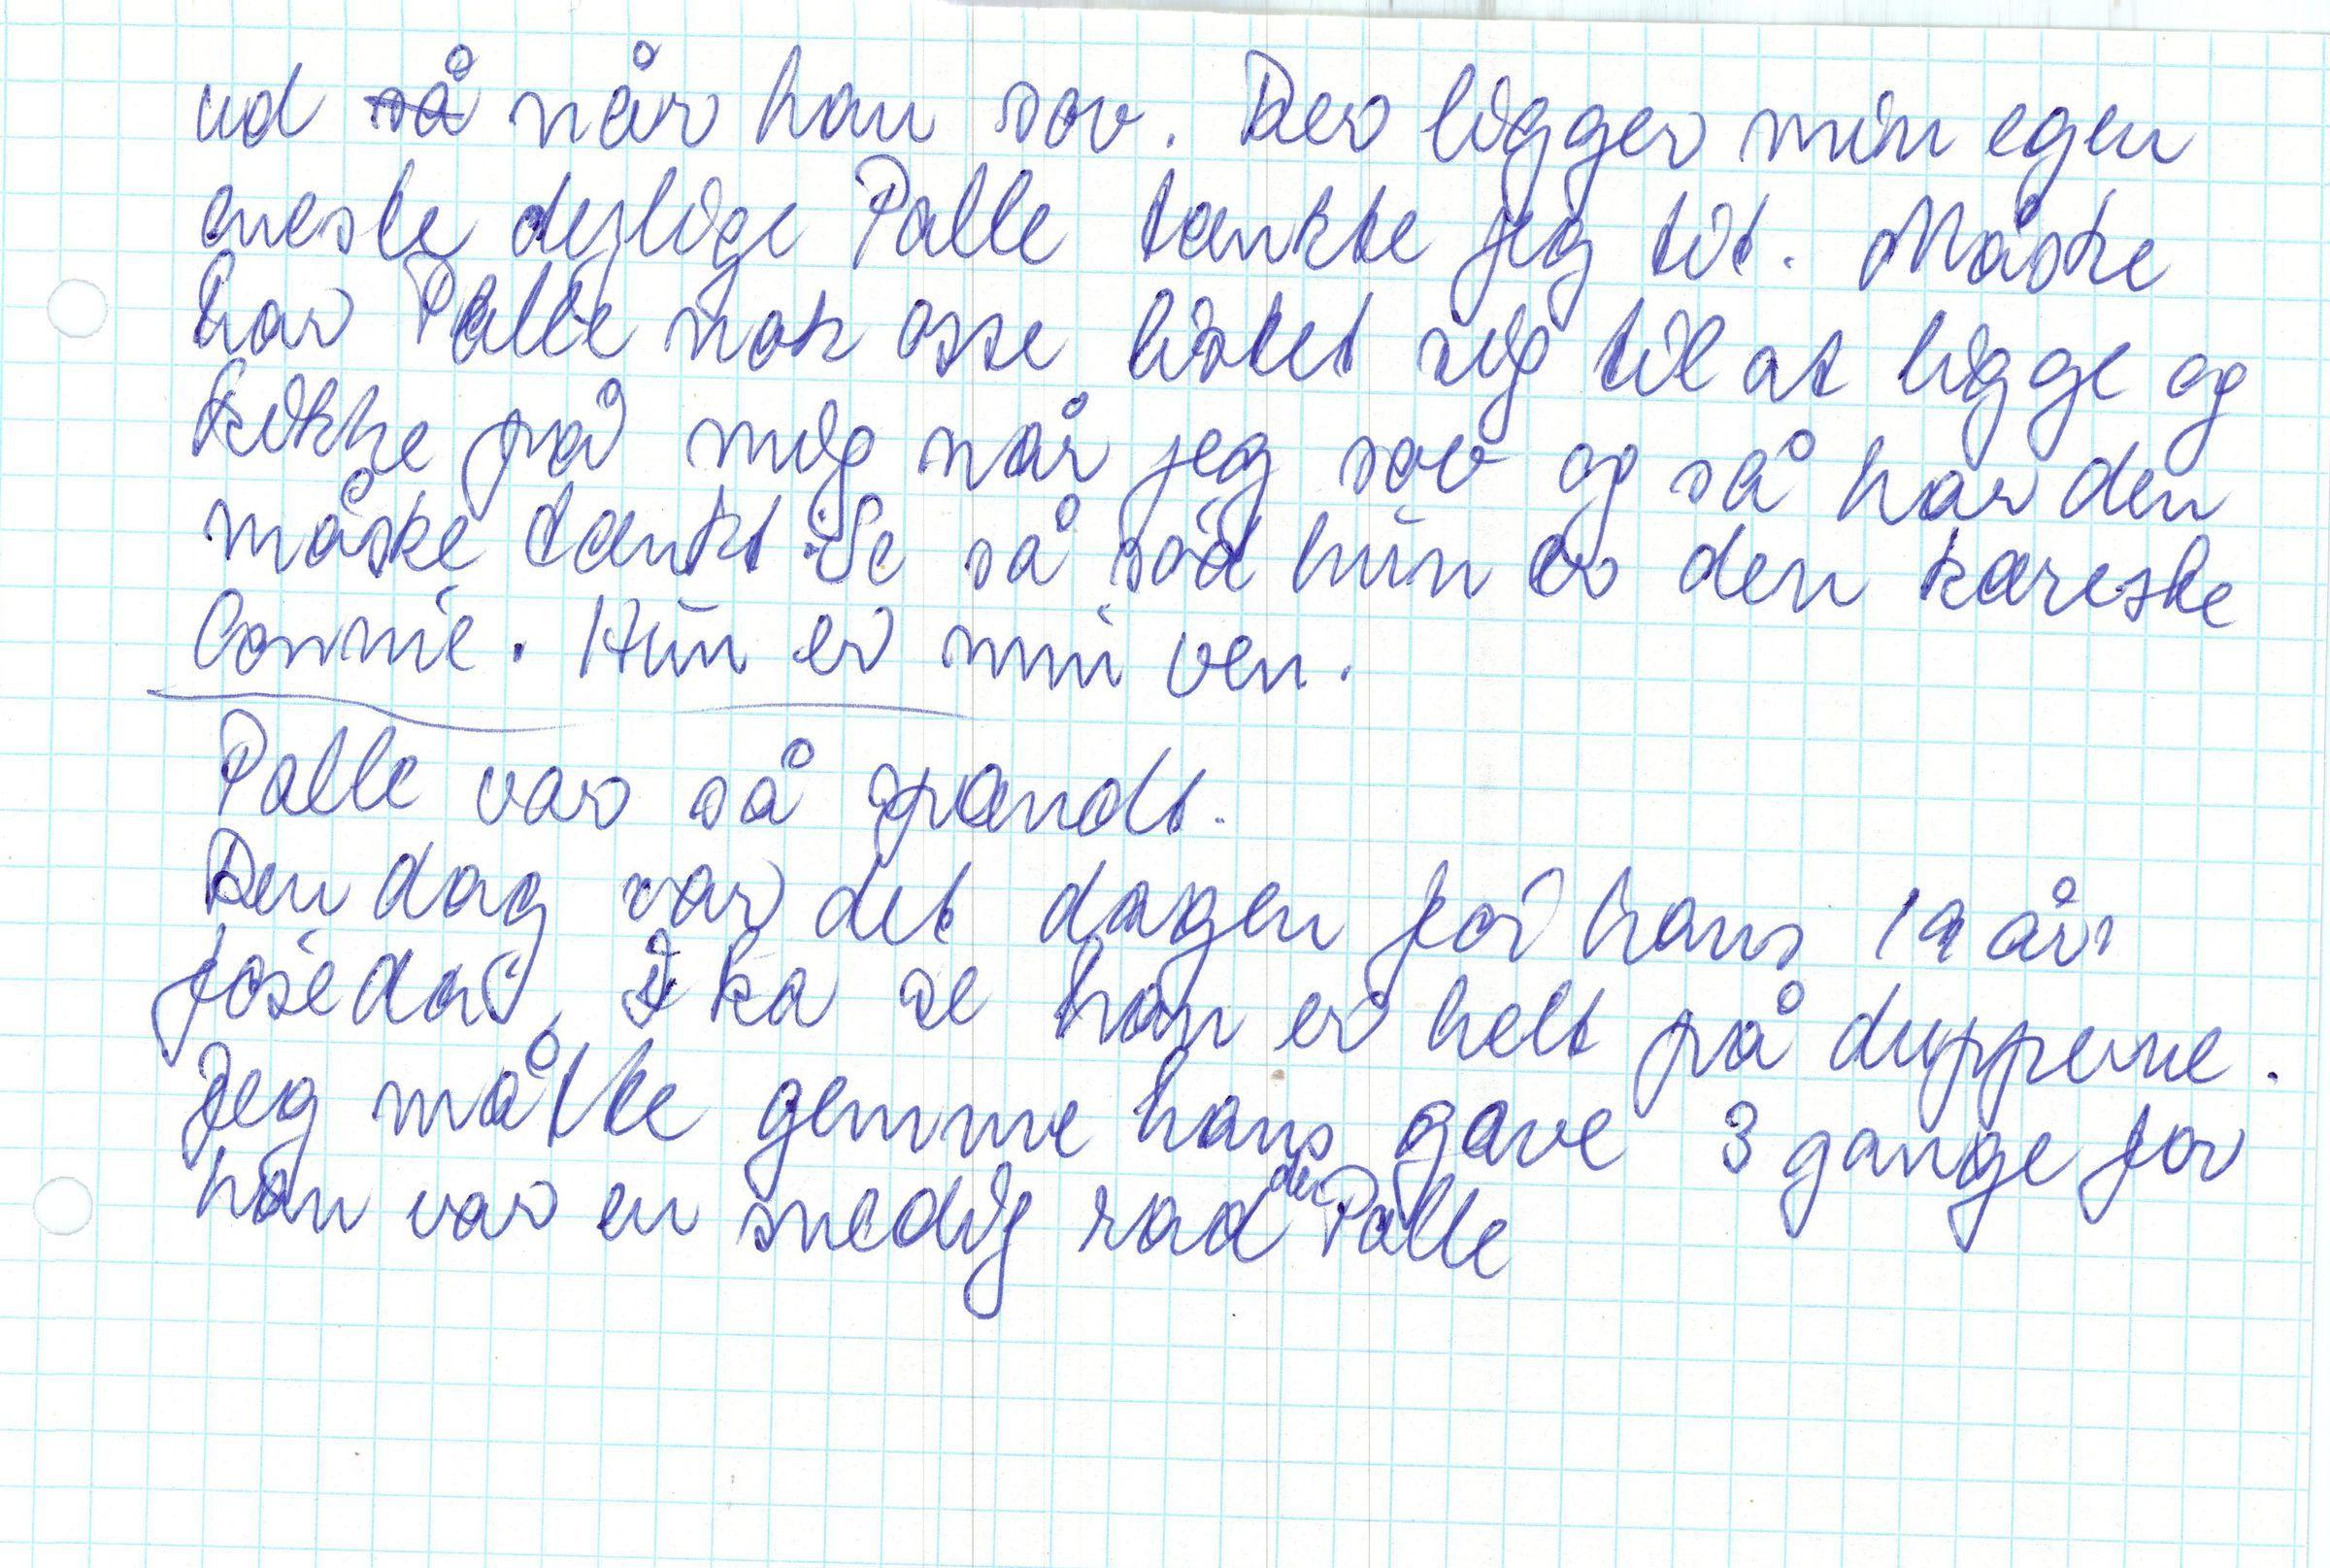 ud så når han sov. Der ligger min egen
eneste dejlige Palle tænkte jeg tit. Måske
har Palle nok osse listet sig til at ligge og
kikke på mig når jeg sov og så har den
måske tænkt: Se så sød hun er den kæreste
Connie. Hun er min ven.
Palle var så spændt.
Den dag var det dagen før hans 19 års
føsedag. I ka se han er helt på dupperne.
Jeg måtte gemme hans gave 3 gange for
han var en snedig rad den Palle